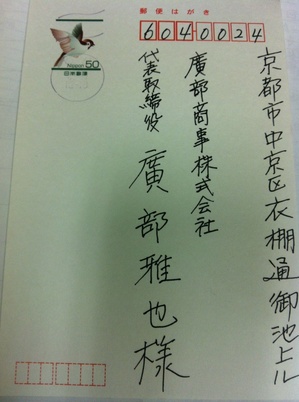 郵便はがき
6040024
京都市中京区衣棚通御池上ル
廣部商事株式会社
代表取締役 廣部雅也様
Nippon 50
日本郵便